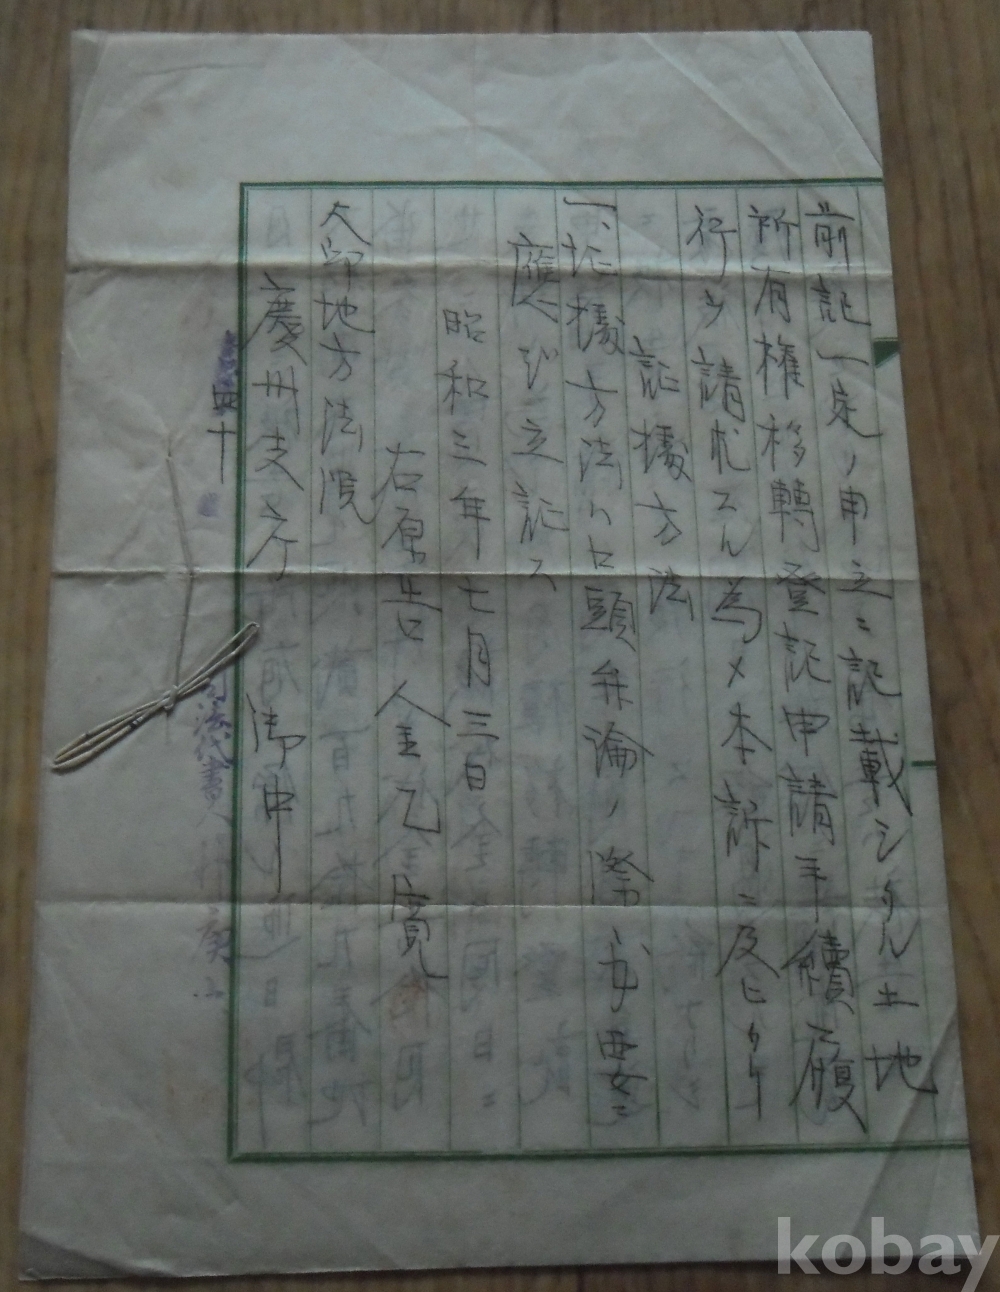 前記一定ノ申立ニ記載シタル土地
所有權移轉登記申請手續履
行ヲ請求スル為メ本訴ニ及ヒタリ
証據方法
一、証據方法ハ口頭弁論ノ際必要ニ
應ジ立証ス
昭和三年七月三日
右原告人
大邱地方法院
慶州支庁 御中
司法代書人
kobay